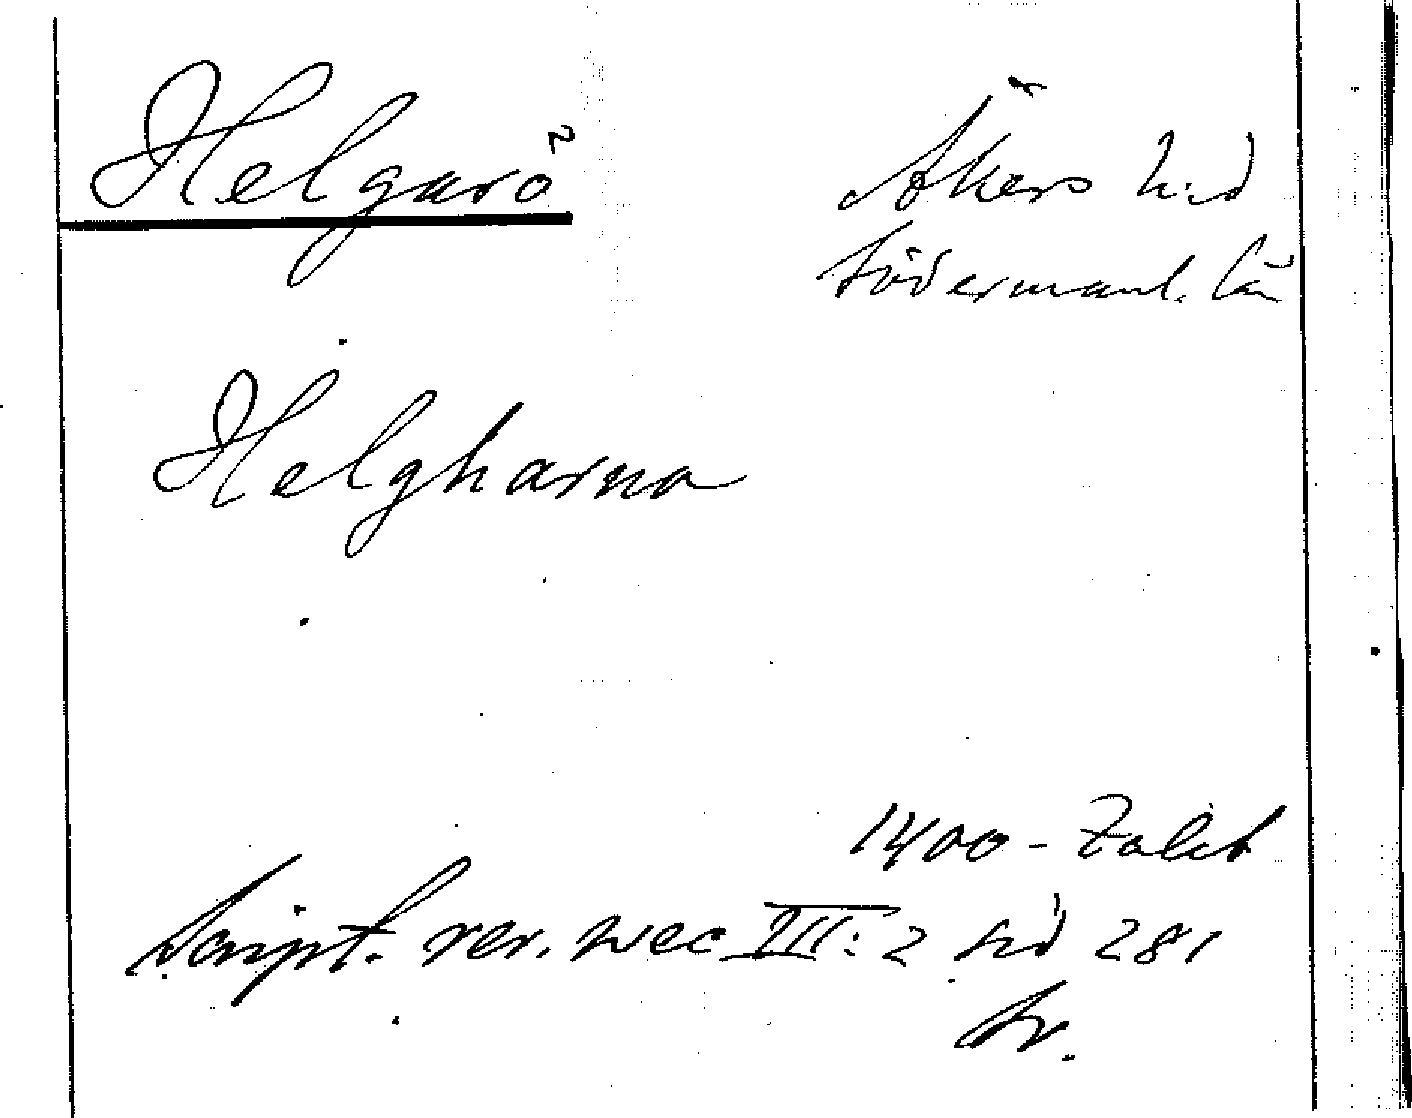 Helgarö² Åkers h:d
Södermanl. län
Helgharna
1400-talet
Script. rer. svec III: 2 sid 281
Sv.